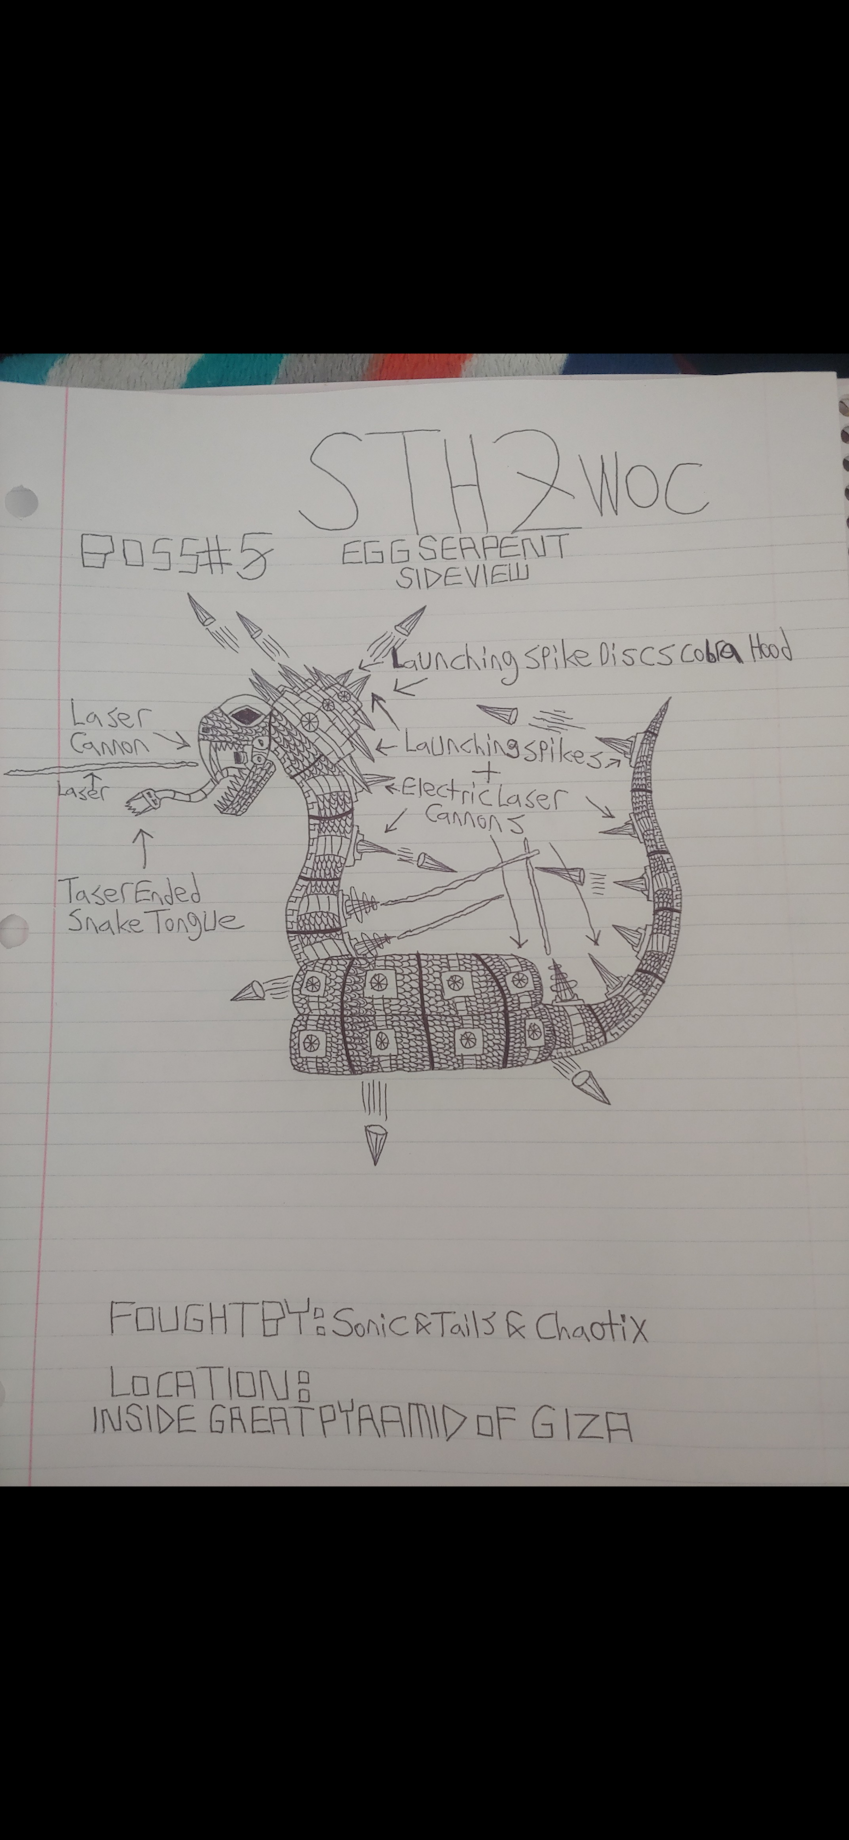 STH2 WOC
BOSS#5
EGG SERPENT
SIDEVIEW
Launching Spike Discs Cobra Hood
Laser
Cannon
Launching spikes
+
Laser
Electric Laser
Cannons
Taser Ended
Snake Tongue
FOUGHT BY: Sonic & Tails & Chaotix
LOCATION:
INSIDE GREAT PYRAMID OF GIZA